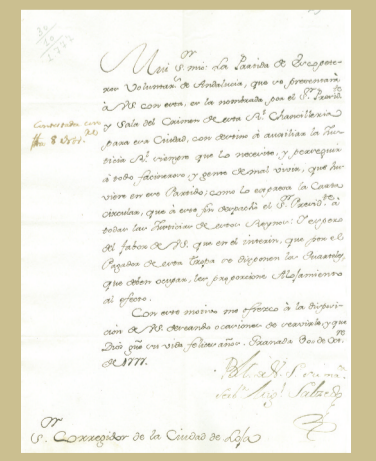 Mui S.r mio: La Partida de Escopete-
ros Voluntar.s de Andalucia, que se presentará
à VS. con esta, es la nombrada por el S.r Presid.te
y Sala del Crimen de esta R.l Chancilleria
para esa Ciudad, con destino à auxiliar la Jus-
ticia R.l siempre que lo necesite, y perseguir
à todo facineroso y gente de mal vivir, que hu-
viere en ese Partido; como lo expresa la Carta
circular, que à este fin despachó el S.r Presid.te à
todas las Justicias de estos Reynos: Y espero
del favor de VS. que en el interin, que por el
Pagador de esta Tropa se disponen los Quarteles,
que deben ocupar, les proporcione Alojamiento
al efecto.
Con este motivo me ofrezco à la disposi-
ción de VS. deseando ocasiones de servirle, y que
Dios güe su vida felices años. Granada
de 1777.
S.r Corregidor de la Ciudad de Loja